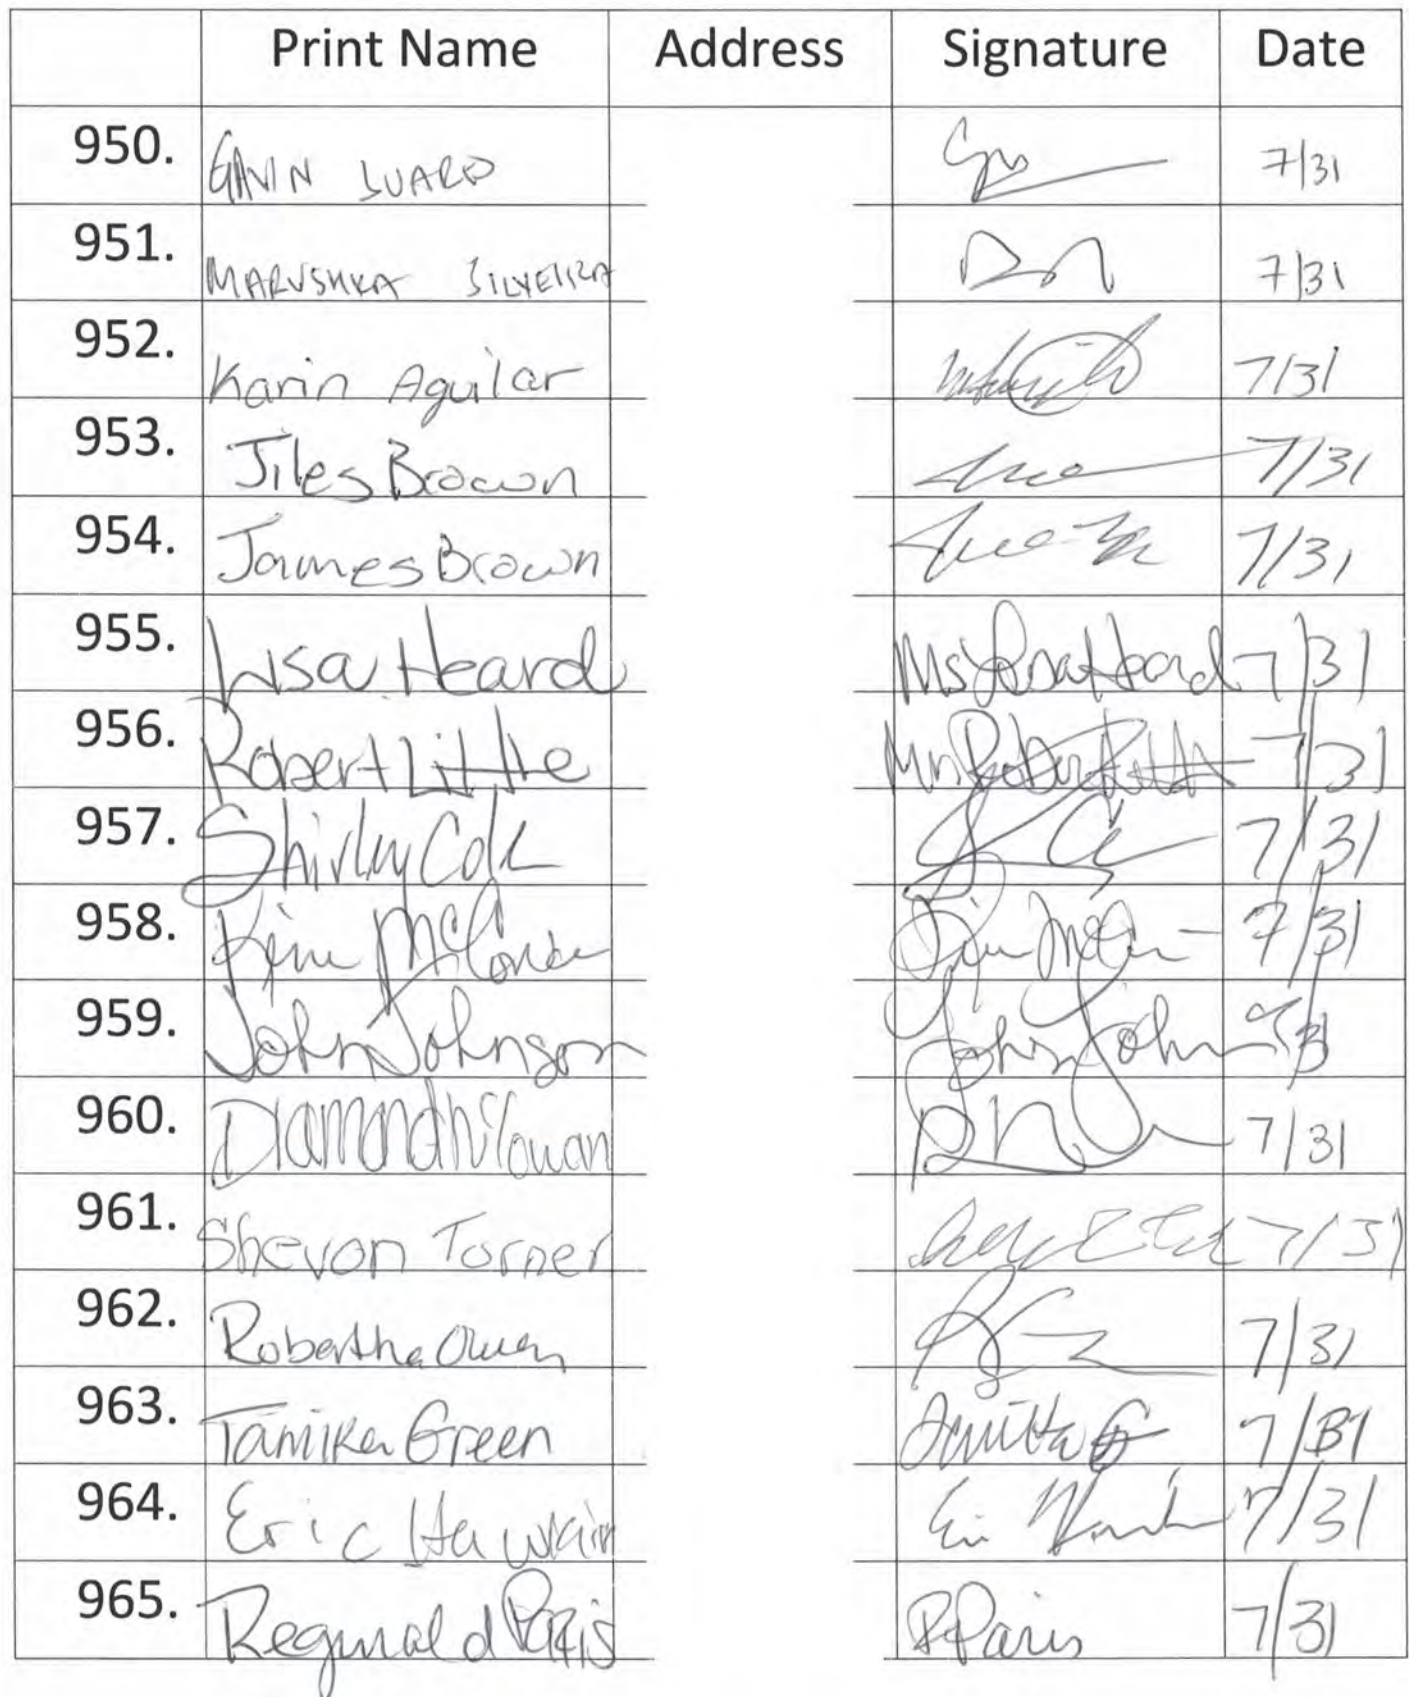 Print Name Address Signature Date
950. GAVIN SUARD 7/31
951. MARUSHKA SILVEIRA 7/31
952. Karin Aguilar 7/31
953. Jiles Brown 7/31
954. Jaumes Brown 7/31
955. Lisa Heard Ms Lisa Heard 7/31
956. Robert Little Mr Robert Little 7/31
957. Shirley Cole 7/31
958. Kim 7/31
959. John Johnson John John 7/31
960. Diamond 7/31
961. Shevon Torner 7/31
962. Robertha Owen 7/31
963. Tamika Green 7/31
964. Eric Hawkin Eric 7/31
965. Reginald Paris R Paris 7/31